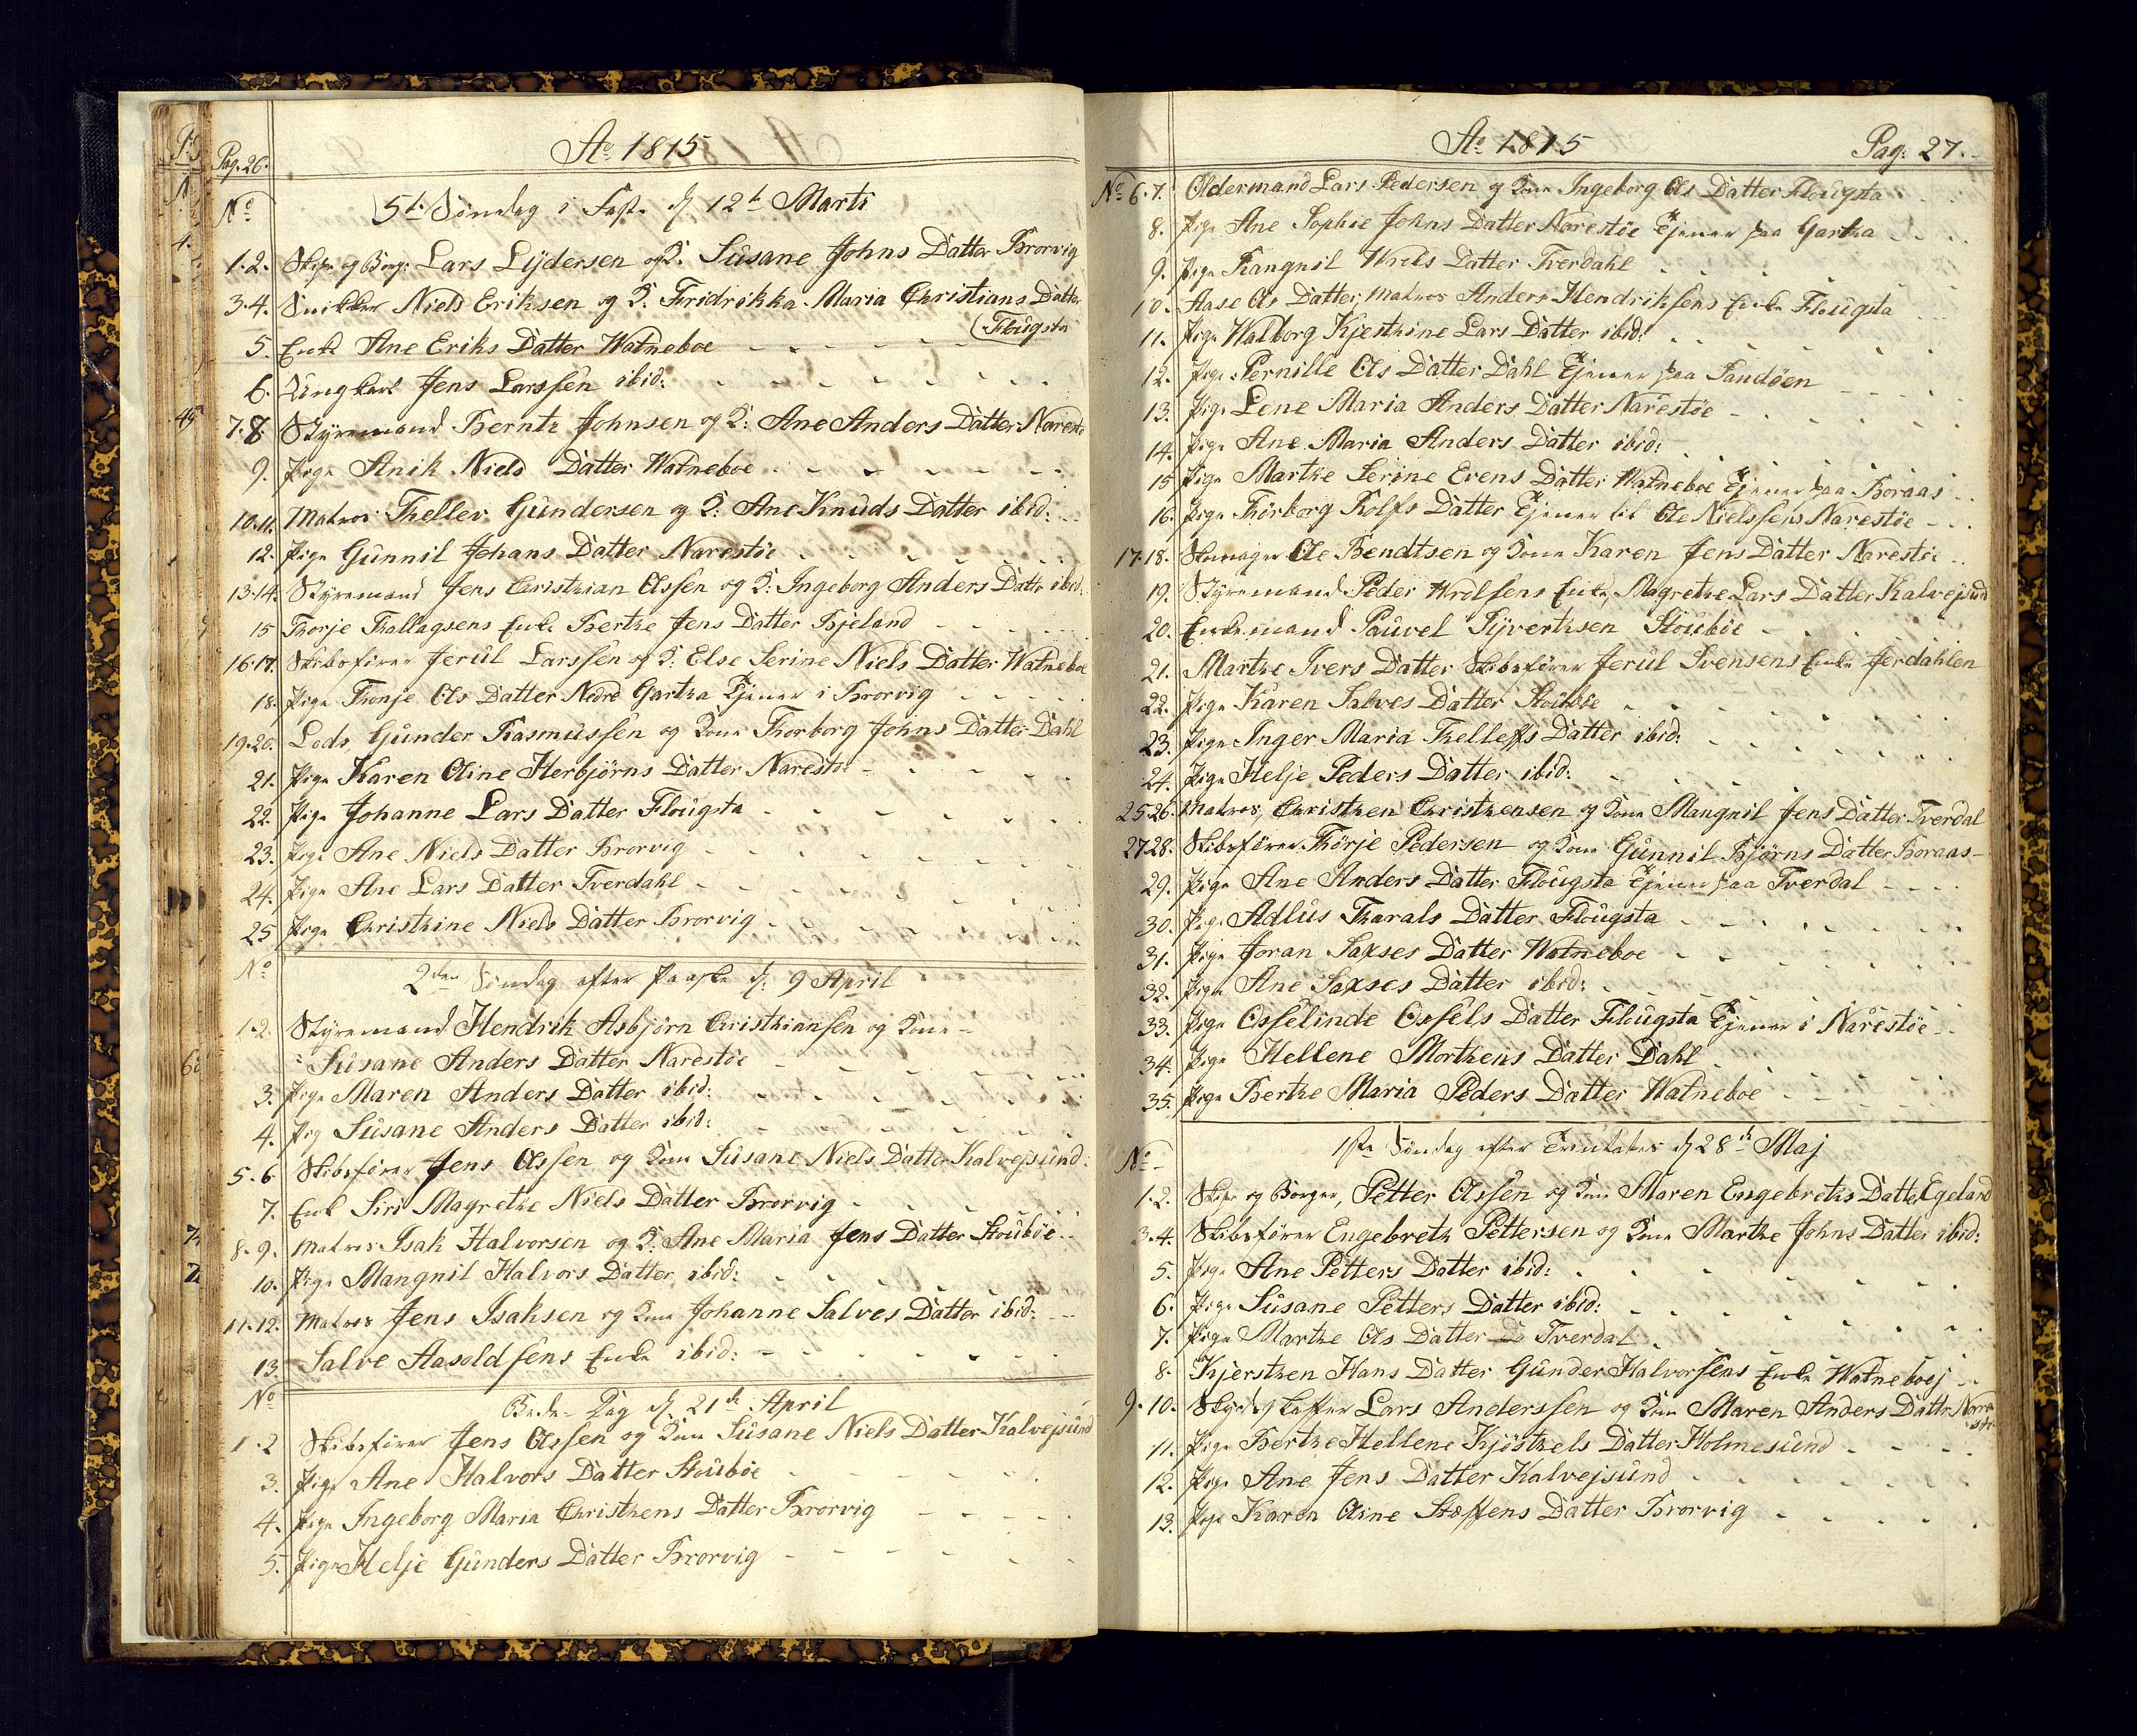 Pag. 26.
Ao 1815
No
5te Søndag i Faste d 12te Marti
1.2. Skipr og Borgr Lars Lydersen og K: Susane Johns Datter Brorvig
3.4. Snikker Niels Eriksen og K: Fridrikka Maria Christians Datter
(Flougsta
5. Enke Ane Eriks Datter Watneboe
6. Ungkarl Jens Larssen ibid:
7.8. Styrmand Berntz Johnsen og K: Ane Anders Datter Narestø
9. Pige Anik Niels Datter Watneboe
10.11. Matros Thellev Gundersen og K: Ane Knuds Datter ibid:
12. Pige Gunnil Johans Datter Narestøe
13.14. Styrmand Jens Christhian Olssen og K: Ingeborg Anders Dattr ibid:
15 Thorje Thallagsens Enke Berthe Jens Datter Bjeland
16.17. Skibsfører Jerul Larssen og K: Else Serine Niels Datter Watneboe
18. Pige Thonje Ols Datter Nedre Gartha tjener i Brorvig
19.20. Lods Gunder Rasmussen og Kone Thorborg Johns Datter Dahl
21. Pige Karen Oline Herbjørns Datter Narestøe
22. Pige Johanne Lars Datter Flougsta
23. Pige Ane Niels Datter Brorvig
24. Pige Ane Lars Datter Tverdahl
25 Pige Christhine Niels Datter Brorvig
No
2den Søndag efter Paaske d: 9 April
1.2. Styrmand Hendrik Asbjørn Christhiansen og Kone
Susane Anders Datter Narestøe
3. Pige Maren Anders Datter ibid:
4. Pig Susane Anders Datter ibid:
5.6 Skibsfører Jens Olssen og Kone Susane Niels Datter Kalvejsund:
7. Enk Siri Magrethe Niels Datter Brorvig
8.9. Matros Isak Halvorsen og K: Ane Maria Jens Datter Stoubøe
10. Pige Mangnil Halvors Datter ibid:
11.12. Matros Jens Isaksen og Kone Johanne Salves Datter ibid:
13. Salve Aasoldsens Enke ibid:
No
Bede-Dag d 21de April
1.2 Skibsfører Jens Olssen og Kone Susane Niels Datter Kalvejsund
3. Pige Ane Halvors Datter Stoubøe
4. Pige Ingeborg Maria Christhens Datter Brorvig
5. Pige Helje Gunders Datter Brorvig
Ao 1815
Pag: 27.
No 6.7. Oldermand Lars Pedersen og Kone Ingeborg Ols Datter Flougsta
8. Pige Ane Sophie Johns Datter Narestøe tjener paa Gartha
9. Pige Rangnil Wrols Datter Tverdahl
10. Aase Ols Datter, Matros Anders Hendriksens Enke Flougsta
11. Pige Walborg Kjesthine Lars Datter ibid:
12. Pige Pernille Ols Datter Dahl tjener paa Sandøen
13. Pige Lene Maria Anders Datter Narestøe
14. Pige Ane Maria Anders Datter ibid:
15 Pige Marthe Serine Evens Datter Watneboe tjener paa Boraas
16. Pige Thorborg Rolfs Datter tjener til Ole Nielssens Narestøe
17.18. Skomager Ole Bendtsen og Kone Karen Jens Datter Narestøe
19. Styrmand Peder Wrolsens Enke, Magrethe Lars Datter Kalvejsund
20. Enkemand Pauvel Syverthsen Stoubøe
21. Marthe Ivers Datter Skibsfører Jerul Svensens Enke Jerdahlen
22. Pige Karen Salves Datter Stoubøe
23. Pige Inger Maria Thelleffs Datter ibid:
24. Pige Helje Peders Datter ibid:
25.26. Matros, Christhen Christhensen og Kone Mangnil Jens Datter Tverdal
27.28. Skibsfører Thorje Pedersen og Kone Gunnil Bjørns Datter Boraas
29. Pige Ane Anders Datter Flougsta tjener paa Tverdal
30. Pige Adlus Tharals Datter Flougsta
31. Pige Joran Saxses Datter Watneboe
32. Pige Ane Saxses Datter ibid:
33. Pige Osselinde Ossels Datter Flougsta tjener i Narestøe
34. Pige Hellene Morthens Datter Dahl
35. Pige Berthe Maria Peders Datter Watneboe
No
1ste Søndag efter Trinitatis d 28de Maj
1.2. Skipr og Borger, Petter Olssen og Kone Maren Engebreths Datter Egeland
3.4. Skibsfører Engebreth Pettersen og Kone Marthe Johns Datter ibid:
5. Pige Ane Petters Datter ibid:
6. Pige Susane Petters Datter ibid:
7. Pige Marthe Ols Datter Tverdal
8. Kjersthen Hans Datter Gunder Halvorsens Enke Watneboej
9.10. Skydskaffer Lars Anderssen og Kone Maren Anders Dattr Nare
støe
11. Pige Berthe Hellene Kjøsthels Datter Holmesund
12. Pige Ane Jens Datter Kalvejsund
13. Pige Karen Oline Steffens Datter Brorvig